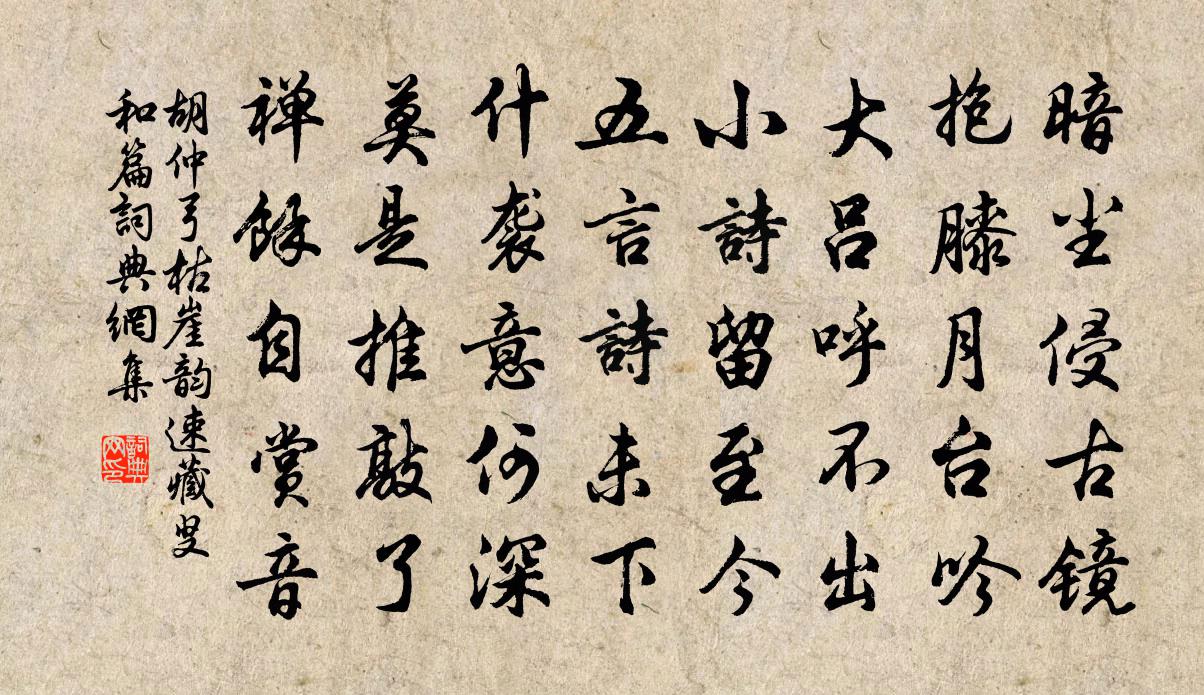 暗尘侵古镜
抱膝月台吟
大吕呼不出
小詩留至今
五言詩未下
什袭意何深
莫是推敲了
禅餘自赏音
胡仲弓枯崖韵速藏叟
和篇詞典網集
詞典
网印